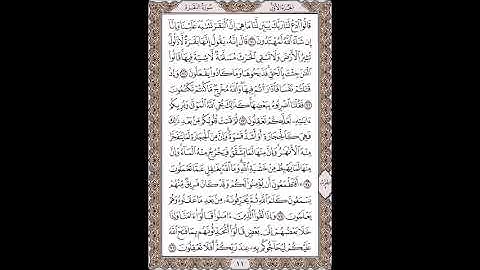 سُورَةُ البَقَرَةِ الجُزْءُ الأَوَّلُ
قَالُوا۟ ٱدْعُ لَنَا رَبَّكَ يُبَيِّن لَّنَا مَا هِىَ إِنَّ ٱلْبَقَرَ تَشَٰبَهَ عَلَيْنَا وَإِنَّآ
إِن شَآءَ ٱللَّهُ لَمُهْتَدُونَ ٧٠ قَالَ إِنَّهُۥ يَقُولُ إِنَّهَا بَقَرَةٌ لَّا ذَلُولٌ
تُثِيرُ ٱلْأَرْضَ وَلَا تَسْقِى ٱلْحَرْثَ مُسَلَّمَةٌ لَّا شِيَةَ فِيهَا قَالُوا۟
ٱلْـَٰٔنَ جِئْتَ بِٱلْحَقِّ فَذَبَحُوهَا وَمَا كَادُوا۟ يَفْعَلُونَ ٧١ وَإِذْ
قَتَلْتُمْ نَفْسًا فَٱدَّٰرَْٰٔتُمْ فِيهَا وَٱللَّهُ مُخْرِجٌ مَّا كُنتُمْ تَكْتُمُونَ
٧٢ فَقُلْنَا ٱضْرِبُوهُ بِبَعْضِهَا كَذَٰلِكَ يُحْىِ ٱللَّهُ ٱلْمَوْتَىٰ وَيُرِيكُمْ
ءَايَٰتِهِۦ لَعَلَّكُمْ تَعْقِلُونَ ٧٣ ثُمَّ قَسَتْ قُلُوبُكُم مِّنۢ بَعْدِ ذَٰلِكَ
فَهِىَ كَٱلْحِجَارَةِ أَوْ أَشَدُّ قَسْوَةً وَإِنَّ مِنَ ٱلْحِجَارَةِ لَمَا يَتَفَجَّرُ
مِنْهُ ٱلْأَنْهَٰرُ وَإِنَّ مِنْهَا لَمَا يَشَّقَّقُ فَيَخْرُجُ مِنْهُ ٱلْمَآءُ وَإِنَّ
مِنْهَا لَمَا يَهْبِطُ مِنْ خَشْيَةِ ٱللَّهِ وَمَا ٱللَّهُ بِغَٰفِلٍ عَمَّا تَعْمَلُونَ
٧٤ ۞ أَفَتَطْمَعُونَ أَن يُؤْمِنُوا۟ لَكُمْ وَقَدْ كَانَ فَرِيقٌ مِّنْهُمْ
يَسْمَعُونَ كَلَٰمَ ٱللَّهِ ثُمَّ يُحَرِّفُونَهُۥ مِنۢ بَعْدِ مَا عَقَلُوهُ وَهُمْ
يَعْلَمُونَ ٧٥ وَإِذَا لَقُوا۟ ٱلَّذِينَ ءَامَنُوا۟ قَالُوٓا۟ ءَامَنَّا وَإِذَا
خَلَا بَعْضُهُمْ إِلَىٰ بَعْضٍ قَالُوٓا۟ أَتُحَدِّثُونَهُم بِمَا فَتَحَ ٱللَّهُ
عَلَيْكُمْ لِيُحَآجُّوكُم بِهِۦ عِندَ رَبِّكُمْ أَفَلَا تَعْقِلُونَ ٧٦
١١